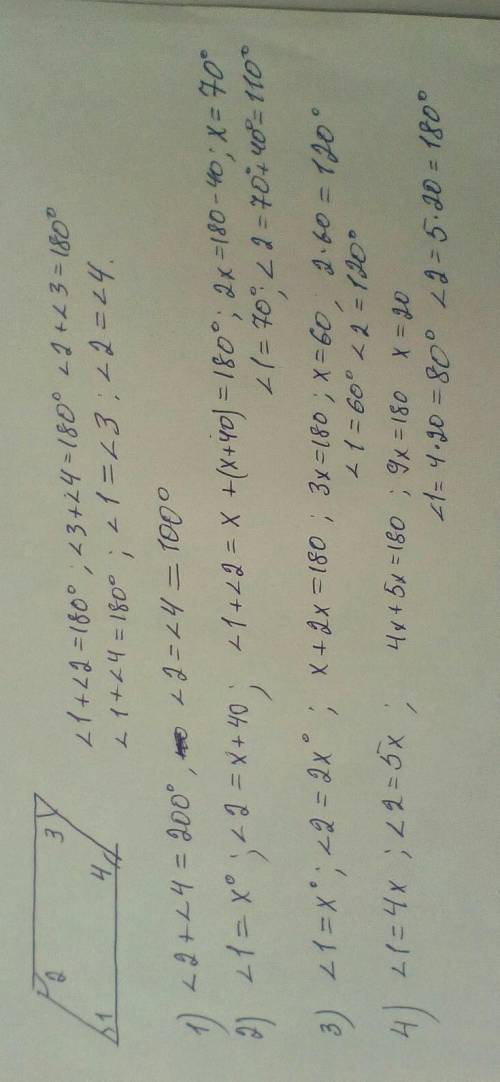 2 3
1 4
∠1+∠2=180°; ∠3+∠4=180° ∠2+∠3=180°
∠1+∠4=180°; ∠1=∠3; ∠2=∠4.
1) ∠2+∠4=200°, ∠2=∠4=100°
2) ∠1=x°; ∠2=x+40; ∠1+∠2=x+(x+40)=180°; 2x=180-40; x=70°
∠1=70°; ∠2=70°+40°=110°
3) ∠1=x°; ∠2=2x°; x+2x=180; 3x=180; x=60; 2·60=120°
∠1=60° ∠2=120°
4) ∠1=4x; ∠2=5x; 4x+5x=180; 9x=180 x=20
∠1=4·20=80° ∠2=5·20=180°